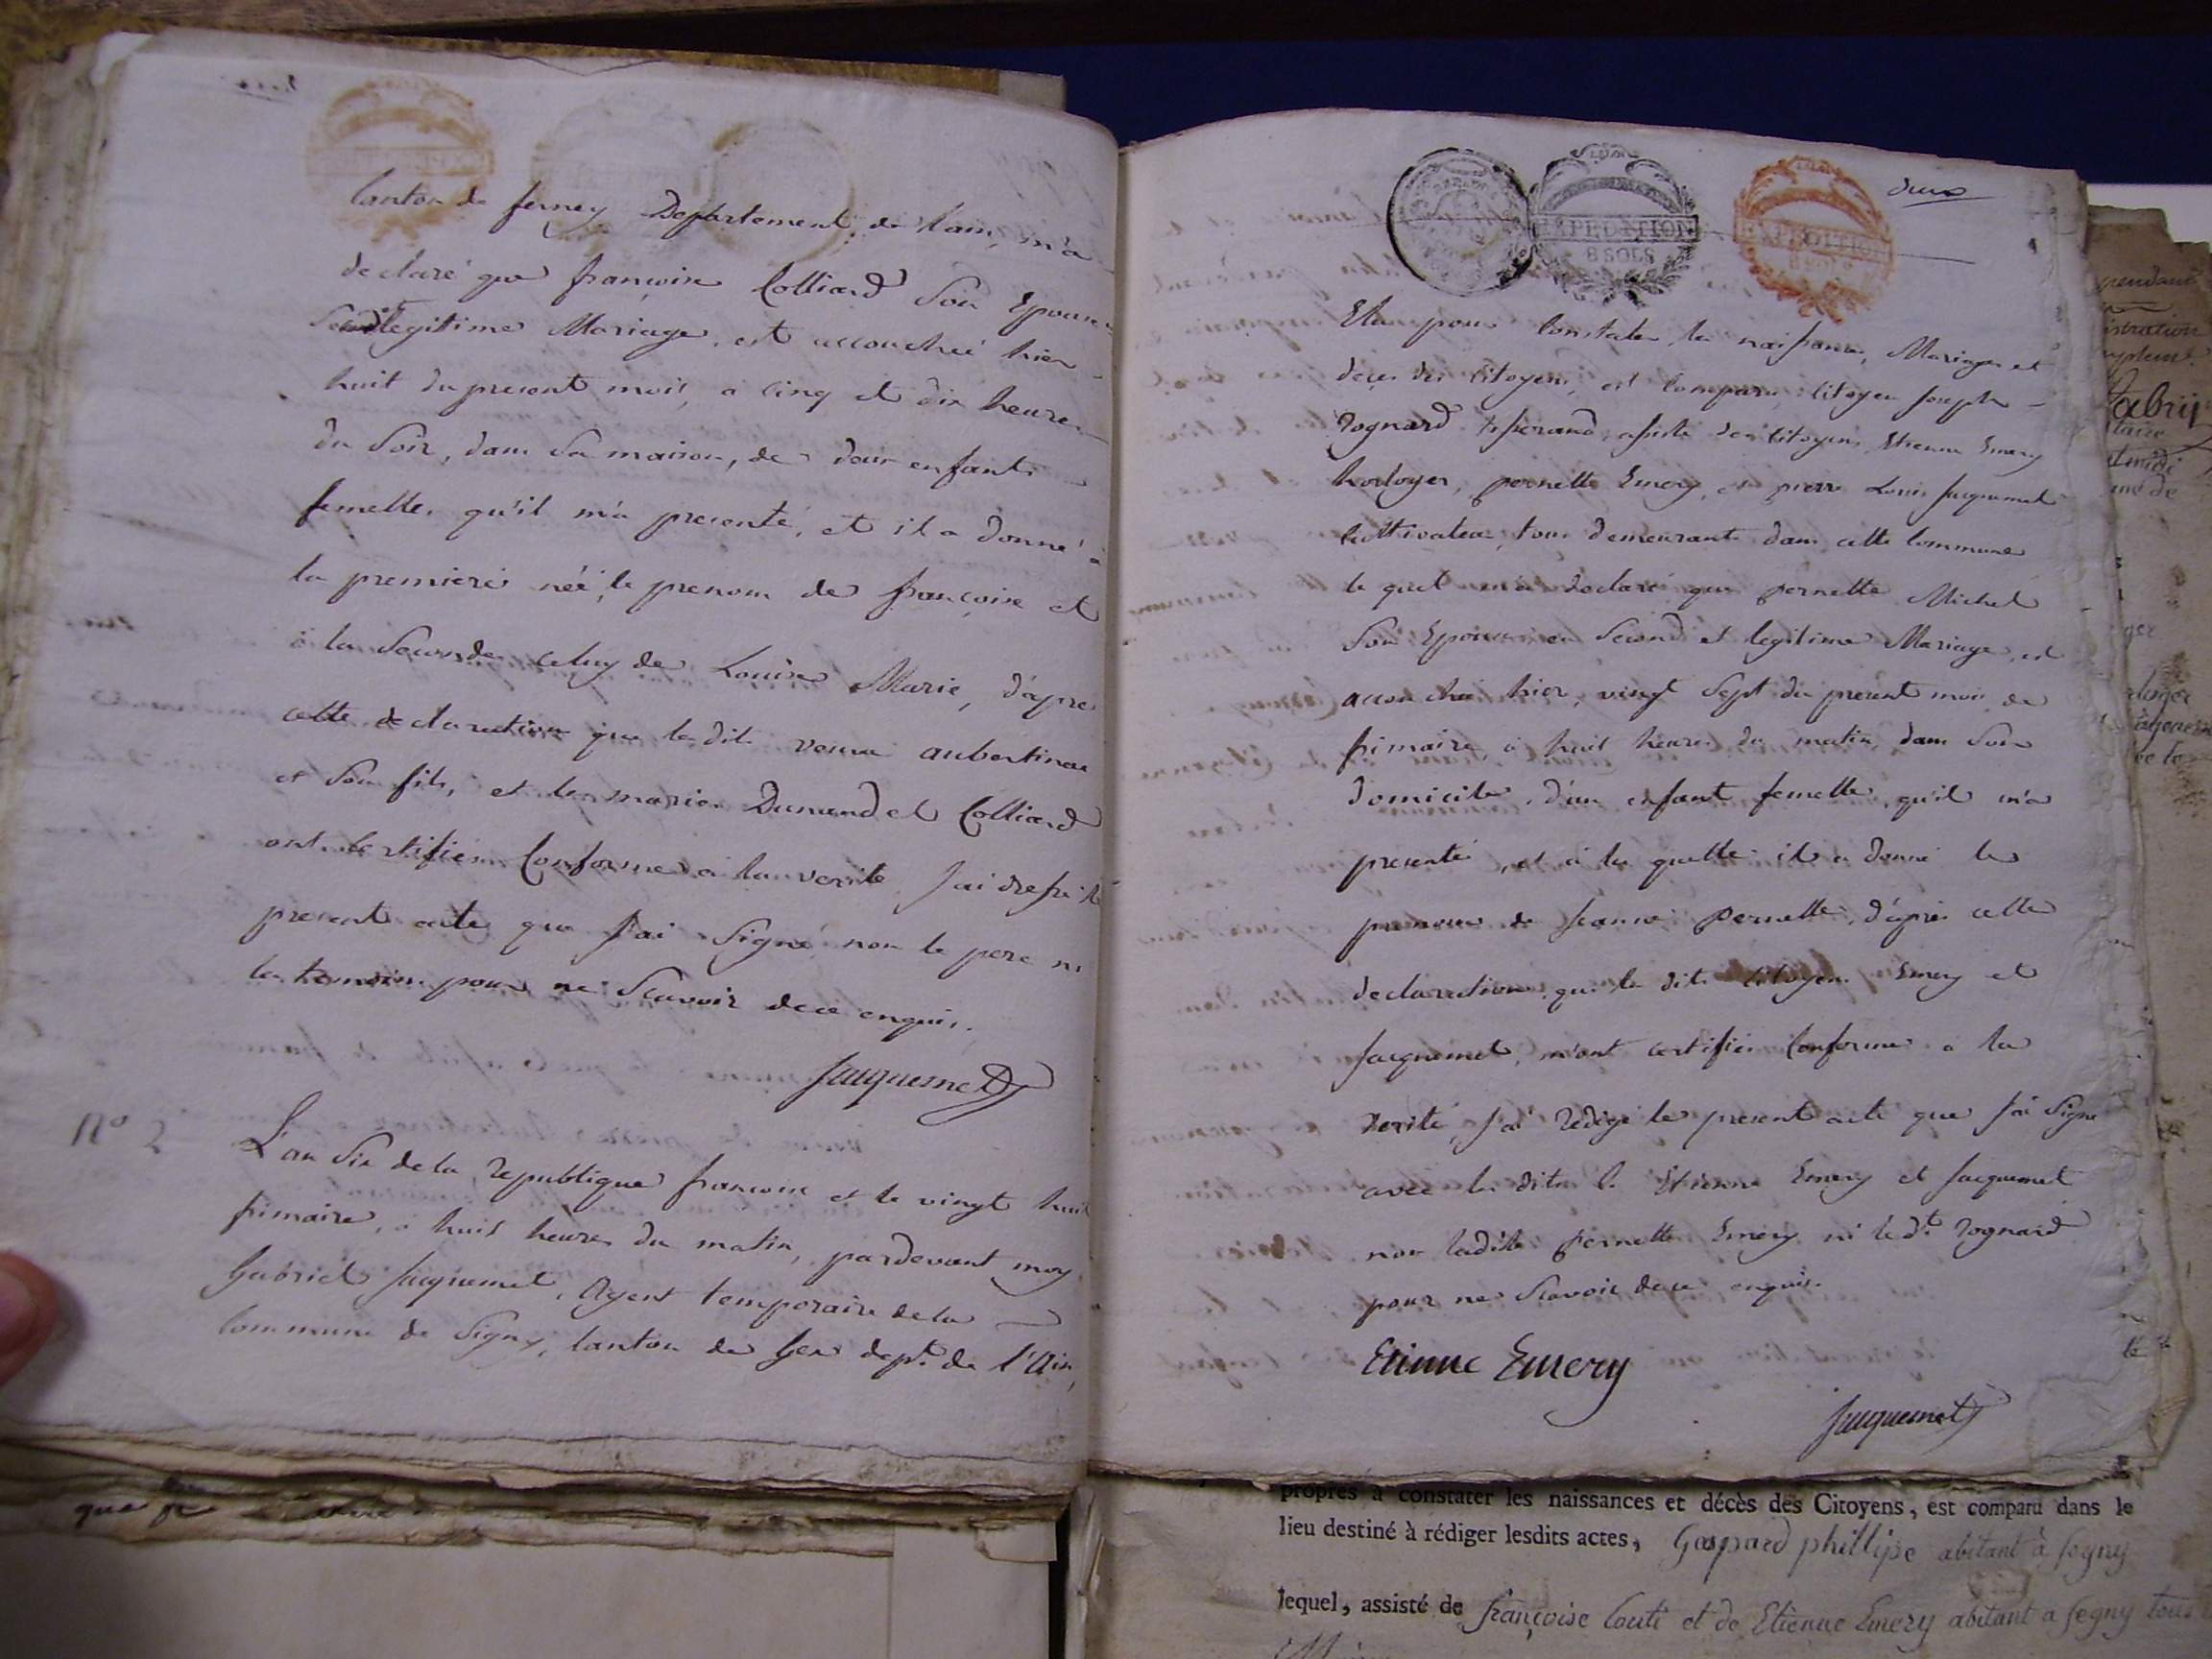 Canton de ferney Departement de lain, m'a
declaré que francoise Colliard Son Epouse
legitime Mariage, est accouchée hier
huit du present mois, a cinq et dix heures
du Soir, dans Sa maison, de deux enfants
femelles qu'il m'a presenté, et il a donné a
la premiere née, le prenom de francoise et
à la Seconde celuy de Louise Marie, d'apres
cette declaration que ladite veuve aubertineau
et Son fils, et les maries Dunand et Colliard
ont certifier Conforme a la verité, J'ai dressé le
present acte que J'ai Signé non le pere ni
les temoins pour ne Scavoir dece enquis.
Jacquemet
N° 2
L'an Six de la republique francoise et le vingt huit
frimaire, a huit heures du matin, pardevant moy
Gabriel Jacquemet, Agent temporaire de la
Commune de Signy, Canton de Gex dept. de l'Ain,
deux
EXPEDITION
8 SOLS
EXPEDITION
8 SOLS
Elu pour Constater les naissances, Mariages et
deces des Citoyens, est Comparu Citoyen Joseph
rognard tisserand, assisté des Citoyens Etienne Emery
horloger, pernette Emery, et pierre Louis Jacquemet
Cultivateur, tous demeurants dans cette Commune
le quel m'a declaré que pernette Michel
Son Epouse en Second et legitime Mariage, est
accouchée hier, vingt Sept du present mois de
frimaire, a huit heures du matin, dans Son
domicile, d'un enfant femelle, qu'il m'a
presenté, et à la quelle il a donné le
prenom de Jeanne Pernette, d'après cette
declaration, que le dits Citoyens Emery et
Jacquemet, m'ont certifier Conforme a la
verité, J'ai redigé le present acte que J'ai Signé
avec les dits C. Etienne Emery et Jacquemet
non ladite Pernette Emery ni le dt. rognard
pour ne Scavoir dece enquis.
Etinne Emery
Jacquemet
propres à constater les naissances et décès des Citoyens, est comparu dans le
lieu destiné à rédiger lesdits actes, Gaspard phillipe abitant à segny
lequel, assisté de françoise Couti et de Etienne Emery abitant a segny tous